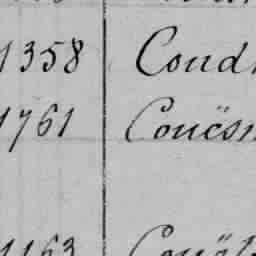 1358 Coud
1761 Couësn
1163 Couët